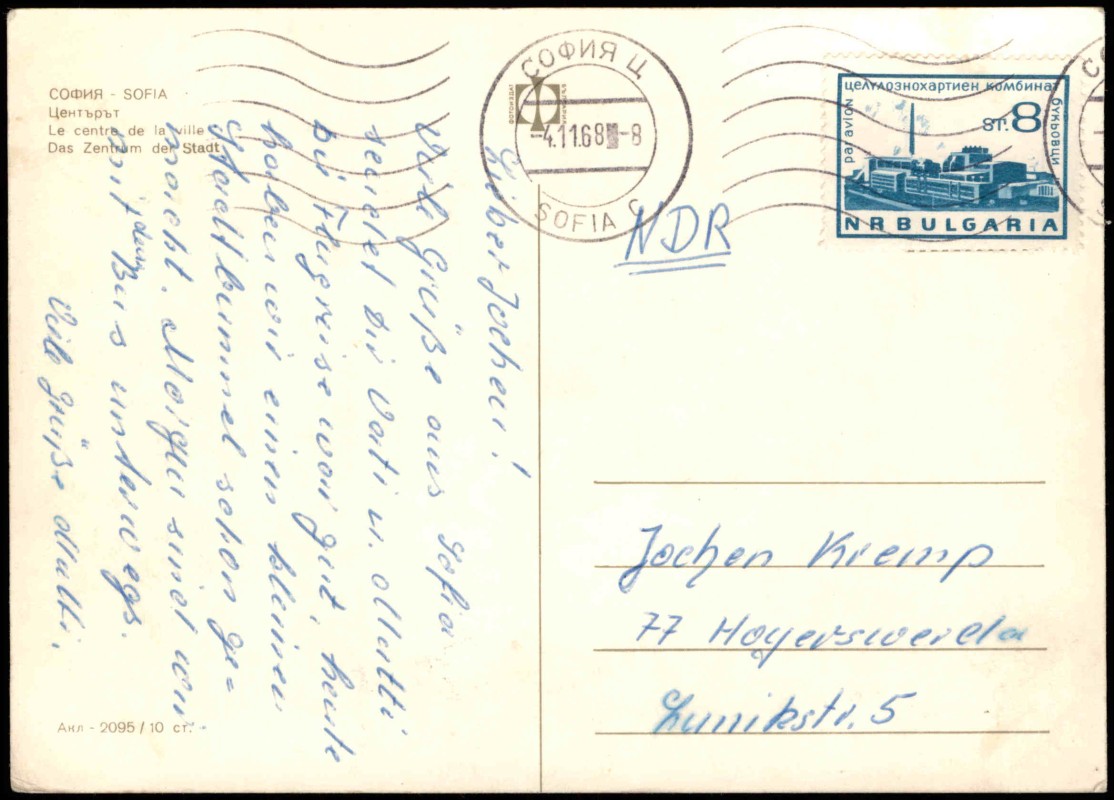 СОФИЯ - SOFIA
Центърът
Le centre de la ville
Das Zentrum der Stadt
Lieber Jochen!
Viele Grüße aus Sofia
sendet Dir Vati u. Mutti
die Flugreise war gut, heute
haben wir einen kleinen
Stadtbummel schon ge=
macht. Morgen sind wir
mit dem Bus unterwegs.
Viele Grüße Mutti.
Акл - 2095 / 10 ст.
СОФИЯ Ц
-4.11.68 -8
SOFIA C
ЦЕЛУЛОЗНОХАРТИЕН КОМБИНАТ
БУКЬОВЦИ
par avion
ST. 8
NR BULGARIA
NDR
Jochen Kremp
77 Hoyerswerda
Lunikstr. 5